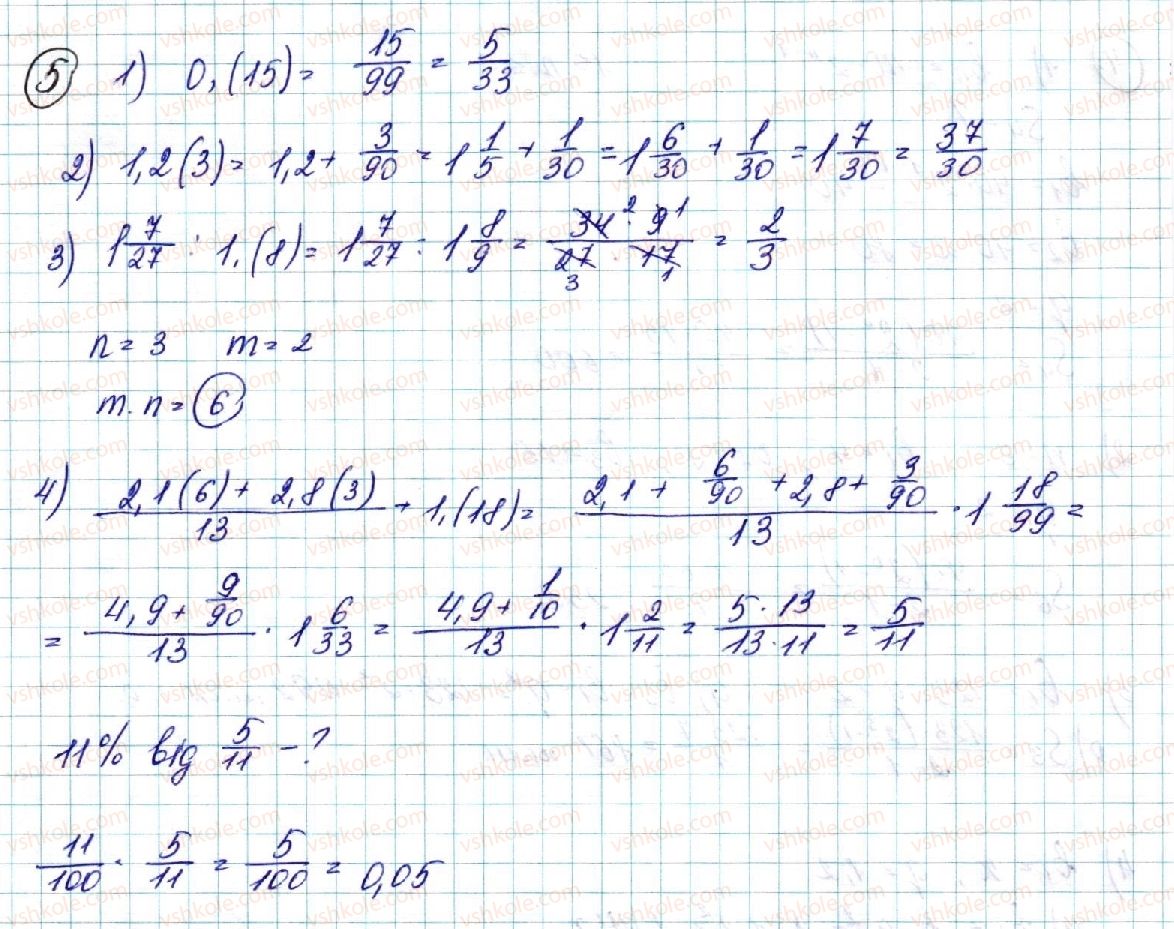 5 1) 0,(15) = 15/99 = 5/33
2) 1,2(3) = 1,2 + 3/90 = 1 1/5 + 1/30 = 1 6/30 + 1/30 = 1 7/30 = 37/30
3) 1 7/27 : 1,(8) = 1 7/27 : 1 8/9 = 34 2 · 9 1 / 27 3 · 17 1 = 2/3
n = 3 m = 2
m · n = 6
4) 2,1(6) + 2,8(3) / 13 + 1,(18) = 2,1 + 6/90 + 2,8 + 3/90 / 13 · 1 18/99 =
= 4,9 + 9/90 / 13 · 1 6/33 = 4,9 + 1/10 / 13 · 1 2/11 = 5 · 13 / 13 · 11 = 5/11
11% від 5/11 - ?
11/100 · 5/11 = 5/100 = 0,05